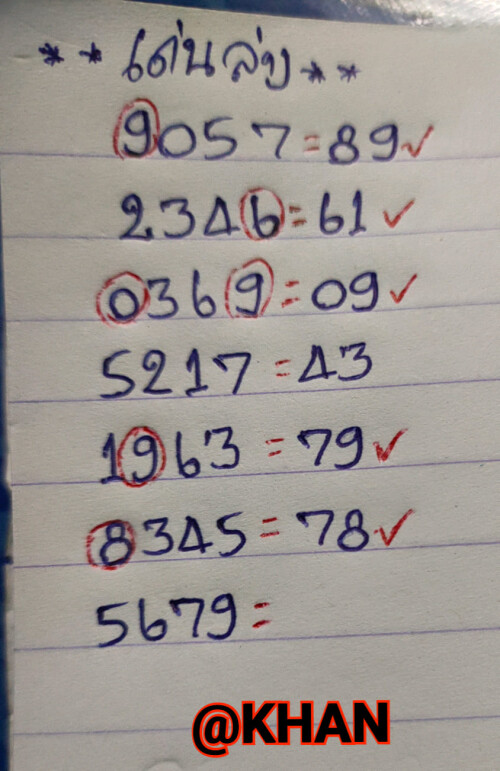 ** เด่นล่าง **
9057 = 89 ✓
2346 = 61 ✓
0369 = 09 ✓
5217 = 43
1963 = 79 ✓
8345 = 78 ✓
5679 =
@KHAN